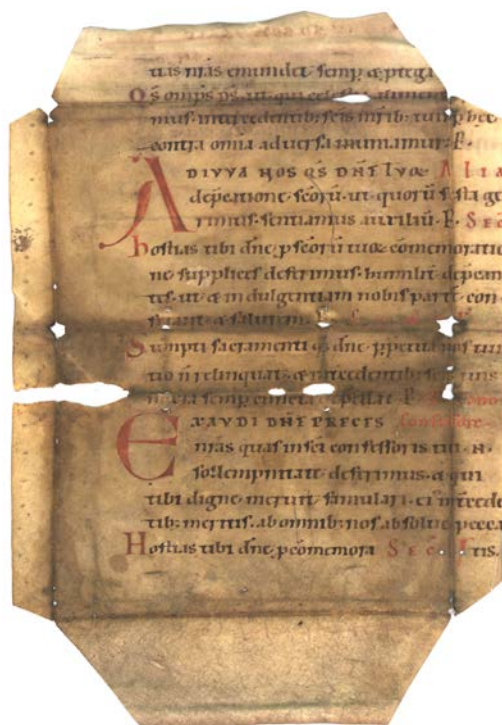 tias nr̄as emundet · semp̄ &
Qs om̄ps ds̄ · ut · qui
mur · intercedentib; sc̄is m̄rib; tuis
contra om̄ia aduersa muniamur · P ·
ADIVVA NOS QS DN̄E TVOꝜ ALIA
dep̄catione · sc̄orū · ut · quorū festa ge
rimus · sentiamus auxiliū · P · SEC
Hostias tibi dn̄e p̄ sc̄orū tuoꝝ cōmemoratio
ne · supplices deferimus · humilit̄ dep̄can
tes · ut & indulgentiam nobis parit̄ con
ferant · & salutem ·
Sumpti sacramenti qs dn̄e · p̄petua nos tui
tio n̄ relinquat · & int̄cedentib;
noxia semp̄ cuncta depellat · P ·
EXAVDI DN̄E PRECES confessore
nr̄as quas in sc̄i confessoris tui · N ·
sollempnitate deferimus · & qui
tibi digne meruit famulari · ei' int̄cede
tib; meritis · ab omnib; nos absolue pecca
Hostias tibi dn̄e p̄ cōmemora SEC̄ tis.